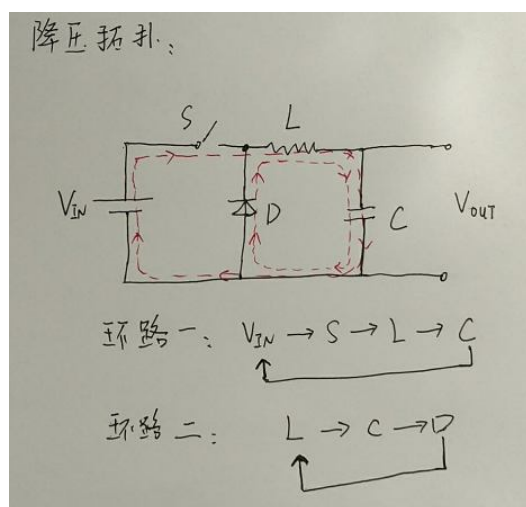 降压拓扑:
S
L
V_IN
D
C
V_OUT
环路一: V_IN → S → L → C
环路二: L → C → D